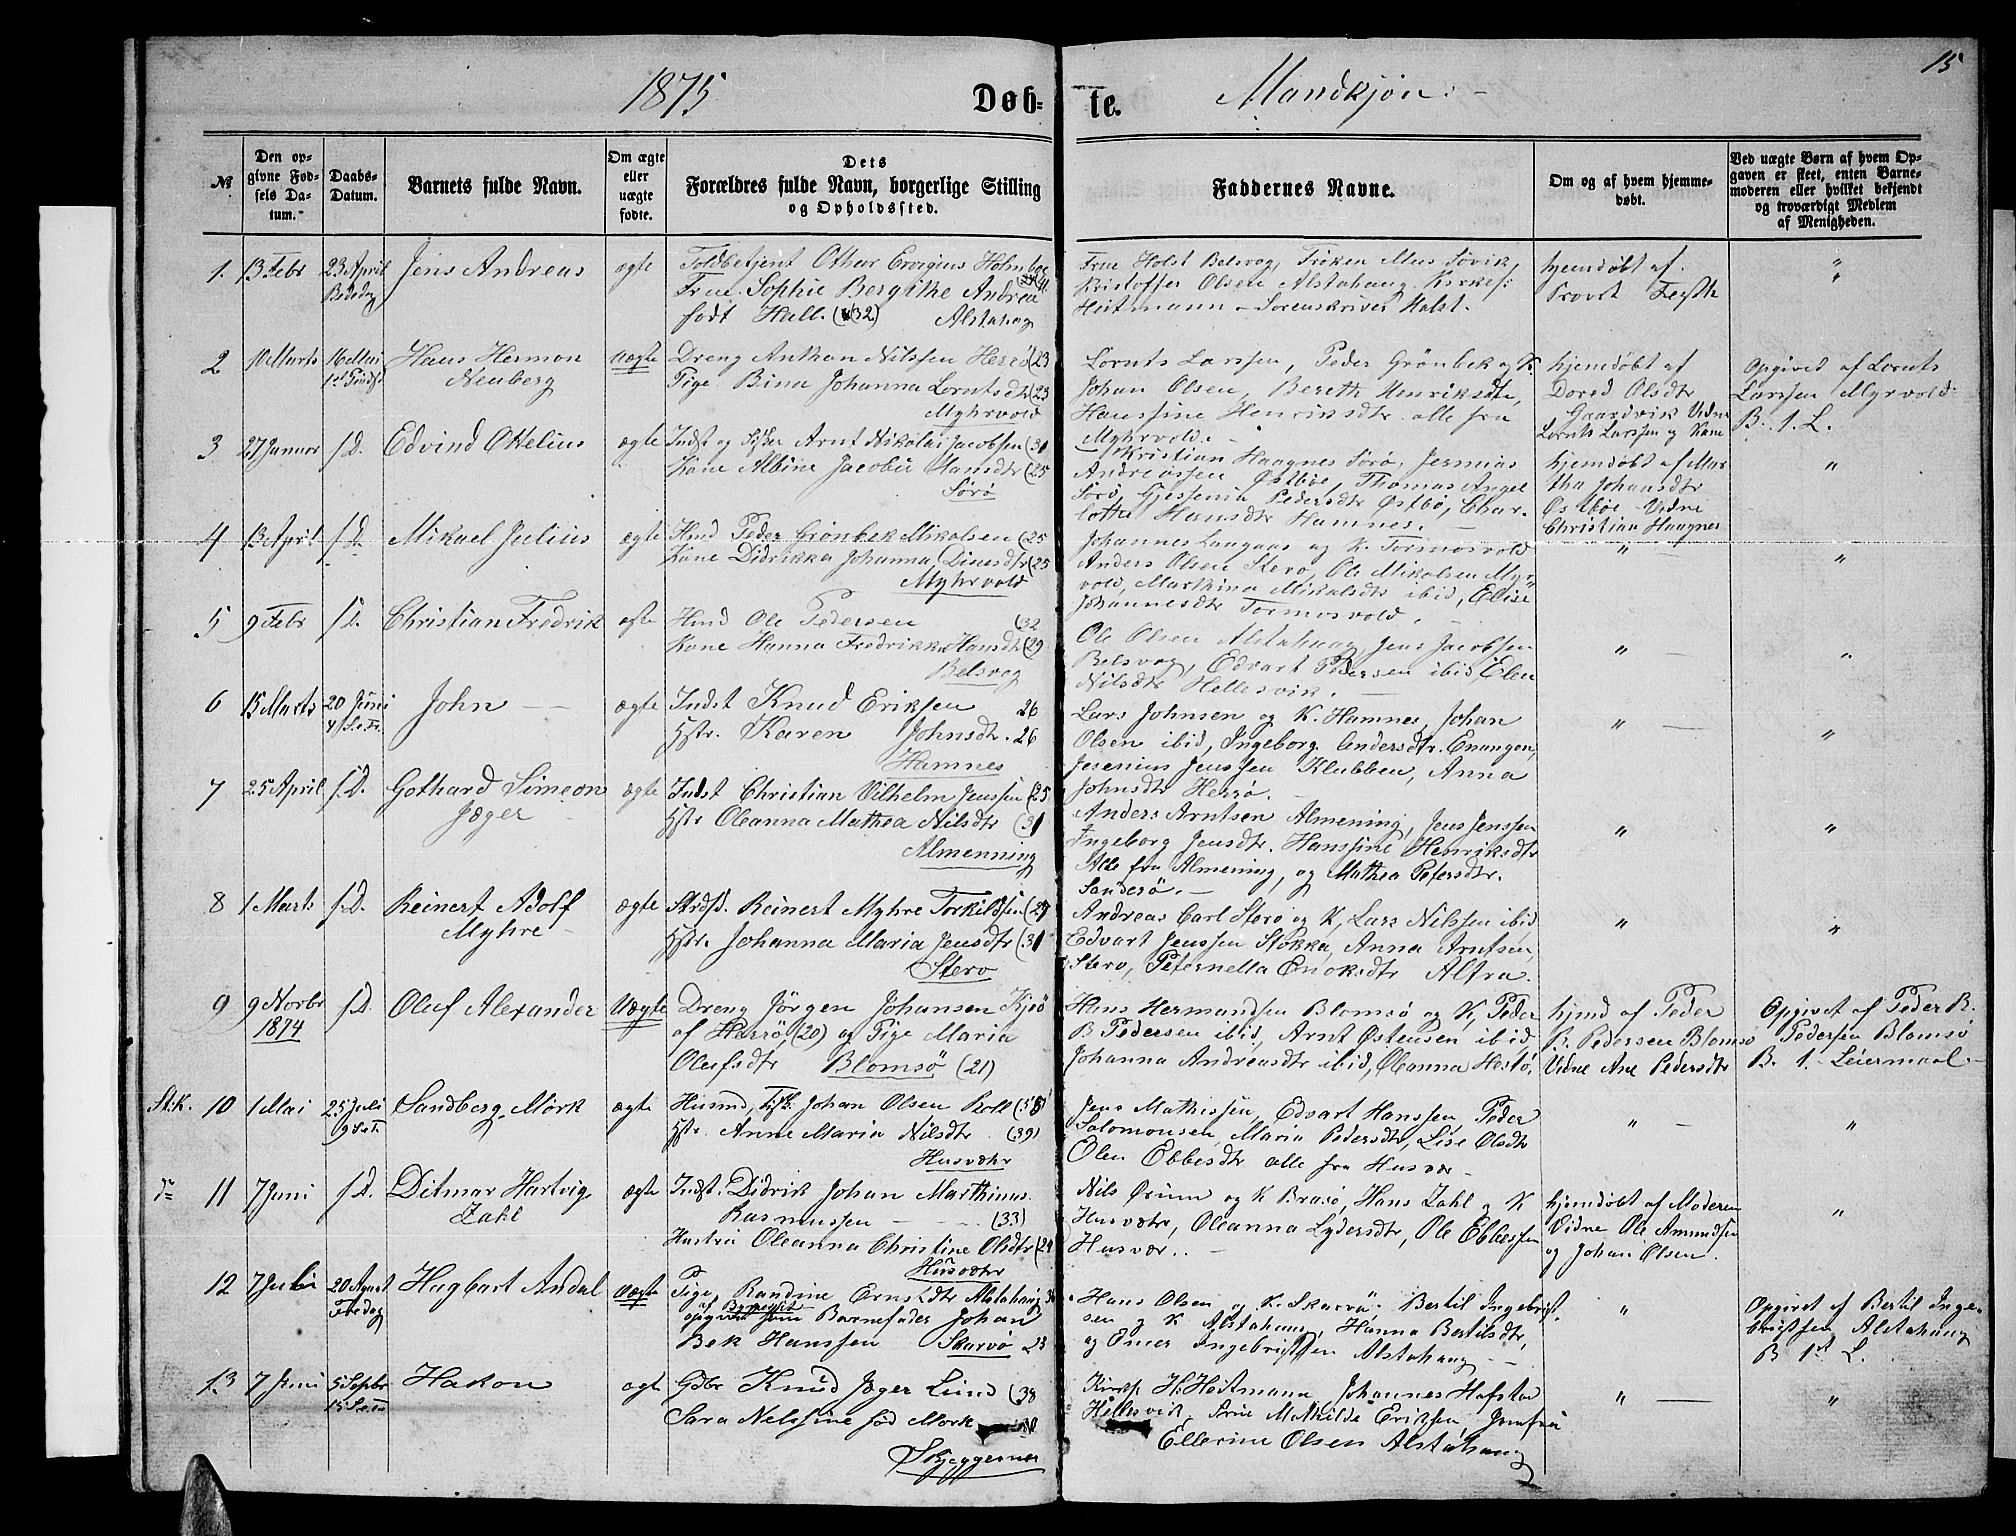 15
1875 Døb- te. Mandkjøn.
№
Den opgivne Fødsels Datum.
Daabs-Datum.
Barnets fulde Navn.
Om ægte eller uægte fødte.
Dets Forældres fulde Navn, borgerlige Stilling og Opholdssted.
Faddernes Navne.
Om og af hvem hjemmedøbt.
Ved uægte Børn af hvem Opgaven er skeet, enten Barnemoderen eller hvilket bekjendt og troværdigt Medlem af Menigheden.
1. 13 Febr 23 April Bededag Jens Andreas ægte
Toldbetjent Othar Ervigius Holmboe
Frue Sophie Bergithe Andrea
født Hall. (32) Alstahaug
Frue Holst Belsvog, Frøken Mus Søvik,
Kristoffer Olsen Alstahaug Kirkes:
Heitmann – Sorenskriver Holst.
hjemdøbt af
Provst
"
2 10 Marts 16 Mai Hans Hermon Neuberg uægte
Dreng Anthon Nilssen Herrø (23
Pige Bina Johanna Lorntsdtr (23
Myhrvold
Lornts Larssen, Peder Grønbek og K.
Johan Olsen, Bereth Henriksdtr,
Hanssine Henriksdtr alle fra
Myhrvold. –
hjemdøbt af
Dored Olsdtr
Gaardvik Vidne
Lornts Larssen og Kone
Opgived af Lornts
Larssen Myrvold
B. 1. L.
3 27 Januar s.D. Edvind Ottelius ægte
Indst og Fisker Arnt Nikolai Jacobsen (31
Kone Albine Jacobie Hansdtr (25
Sørø
Kristian Haagnes Sørø, Jermias
Andreassen Østbøe, Thomas Angel
Sørø, Gjessenia Pedersdtr Østbø, Char-
lotte Hansdtr Hamnes. –
hjemdøbt af Mar-
tha Johansdtr
Østbøe Vidne
Christian Haagnes
"
4 13 April s.D. Mikael Julius ægte
Hmd Peder Grønbek Mikalsen (25
Kone Didrikka Johanna Dinesdtr (25
Myhrvold
Johannes Langaas og K. Tormosvold
Anders Olsen Sterø, Ole Mikalsen Myr-
vold, Marthina Mikalsdtr ibid, Elise
Johannesdtr Tormosvold.
" –
"
5 9 Febr s.D. Christian Fredrik ægte
Hmd Ole Pedersen (32
Kone Hanna Fredrikka Hansdtr (29
Belsvog
Ole Olsen Alstahaug, Jens Jacobsen
Belsvog, Edvart Pedersen ibid, Elen
Nilsdtr Hellesvik. –
" –
"
6 15 Marts 20 Juni 4 S.e.Tr. John – – ægte
Indst Knud Eriksen 26
Hstr. Karen Johnsdtr. 26
Hamnes
Lars Johnsen og K. Hamnes, Johan
Olsen ibid, Ingeborg Andersdtr.
Jesenius Jenssen Klubben, Anna
Johnsdtr Herrø.
" –
"
7 25 April s.D. Gothard Simeon Jæger ægte
Indst Christian Vilhelm Jenssen (25
Hstr Oleanna Mathea Nilsdtr (31
Almenning
Anders Arntsen Almening, Jens Jenssen
Ingeborg Jensdtr. Hanssine Henriksdtr
Alle fra Almening, og Mathea Petersdtr.
Sanderø. –
"
"
8 1 Marts s.D. Reinert Adolf Myhre ægte
Strds. Reinert Myhre Torkildsen (27
Hstr. Johanna Maria Jensdtr (31
Sterø
Andreas Carl Sterø og K, Lars Nilssen ibid
Edvart Jenssen Stokka, Anna Arntsen
Sterø, Peternella Enoksdtr Alfra.
"
"
9 9 Novbr 1874 s.D. Oluf Alexander Uægte
Dreng Jørgen Johansen Kjsø
af Herrø, (20) og Pige Maria
Olufsdtr Blomsø (21)
Hans Hermandsen Blomsø og K, Peder
B Pedersen ibid, Arnt Østensen ibid
Johanna Andreasdtr ibid, Oleanna Hestø,
hjmd af Peder
B. Pedersen Blomsø
Vidne Ane Pedersdtr
Opgivet af Peder B.
Pedersen Blomsø
B. 1. Leiermaal –
St.K. 10 1 Mai 25 Juli 9 S.e.T. Sandberg Mørk ægte
Husmd, Fisk. Johan Olsen Roll
Hstr. Anne Maria Nilsdtr. (39)
Husvæhr
Jens Mathissen, Edvart Hanssen, Peder
Salomonsen, Maria Pedersdtr, Lise Olsdtr
Olen Ebbesdtr alle fra Husvær –
" –
"
do 11 7 Juni s.D. Ditmar Hartvig Zahl ægte
Indst. Didrik Johan Marthinus
Rasmussen – – (33)
Hustru Oleanna Christine Olsdtr (29
Husvæhr
Nils Grunn og K Brasø, Hans Zahl og K
Husvæhr, Oleanna Lydersdtr, Ole Ebbessen
Husvær. –
hjemdøbt af Moderen
Vidne Ole Amundsen
og Johan Olsen
"
12 7 Juli 20 August Fredag Hagbart Andal Uægte
Pige Randine Ernsdtr Alstahaug
opgivet som Barnefader Johan
Bek Hanssen Skarvø 23
Hans Olsen og K. Skarvø. Bertil Ingebrigt-
sen og K Alstahaug, Hanna Bertilsdtr,
og Emer Ingebrigtsen Alstahaug –
"
Opgivet af Bertil Inge-
brigtsen Alstahaug
B 1st L.
13 7 Juni 5 Septbr 15 S.e.Tr Hakon ægte
Gdbr Knud Jæger Lund (38
Sara Nelssine fød Mørk
Skjeggernes
Kirks. H. Heitmann, Johannes Hofstad
Hellesvik, Frue Mathilde Eriksen, Jomfru
Ellerine Olsen Alstahaug
" –
"